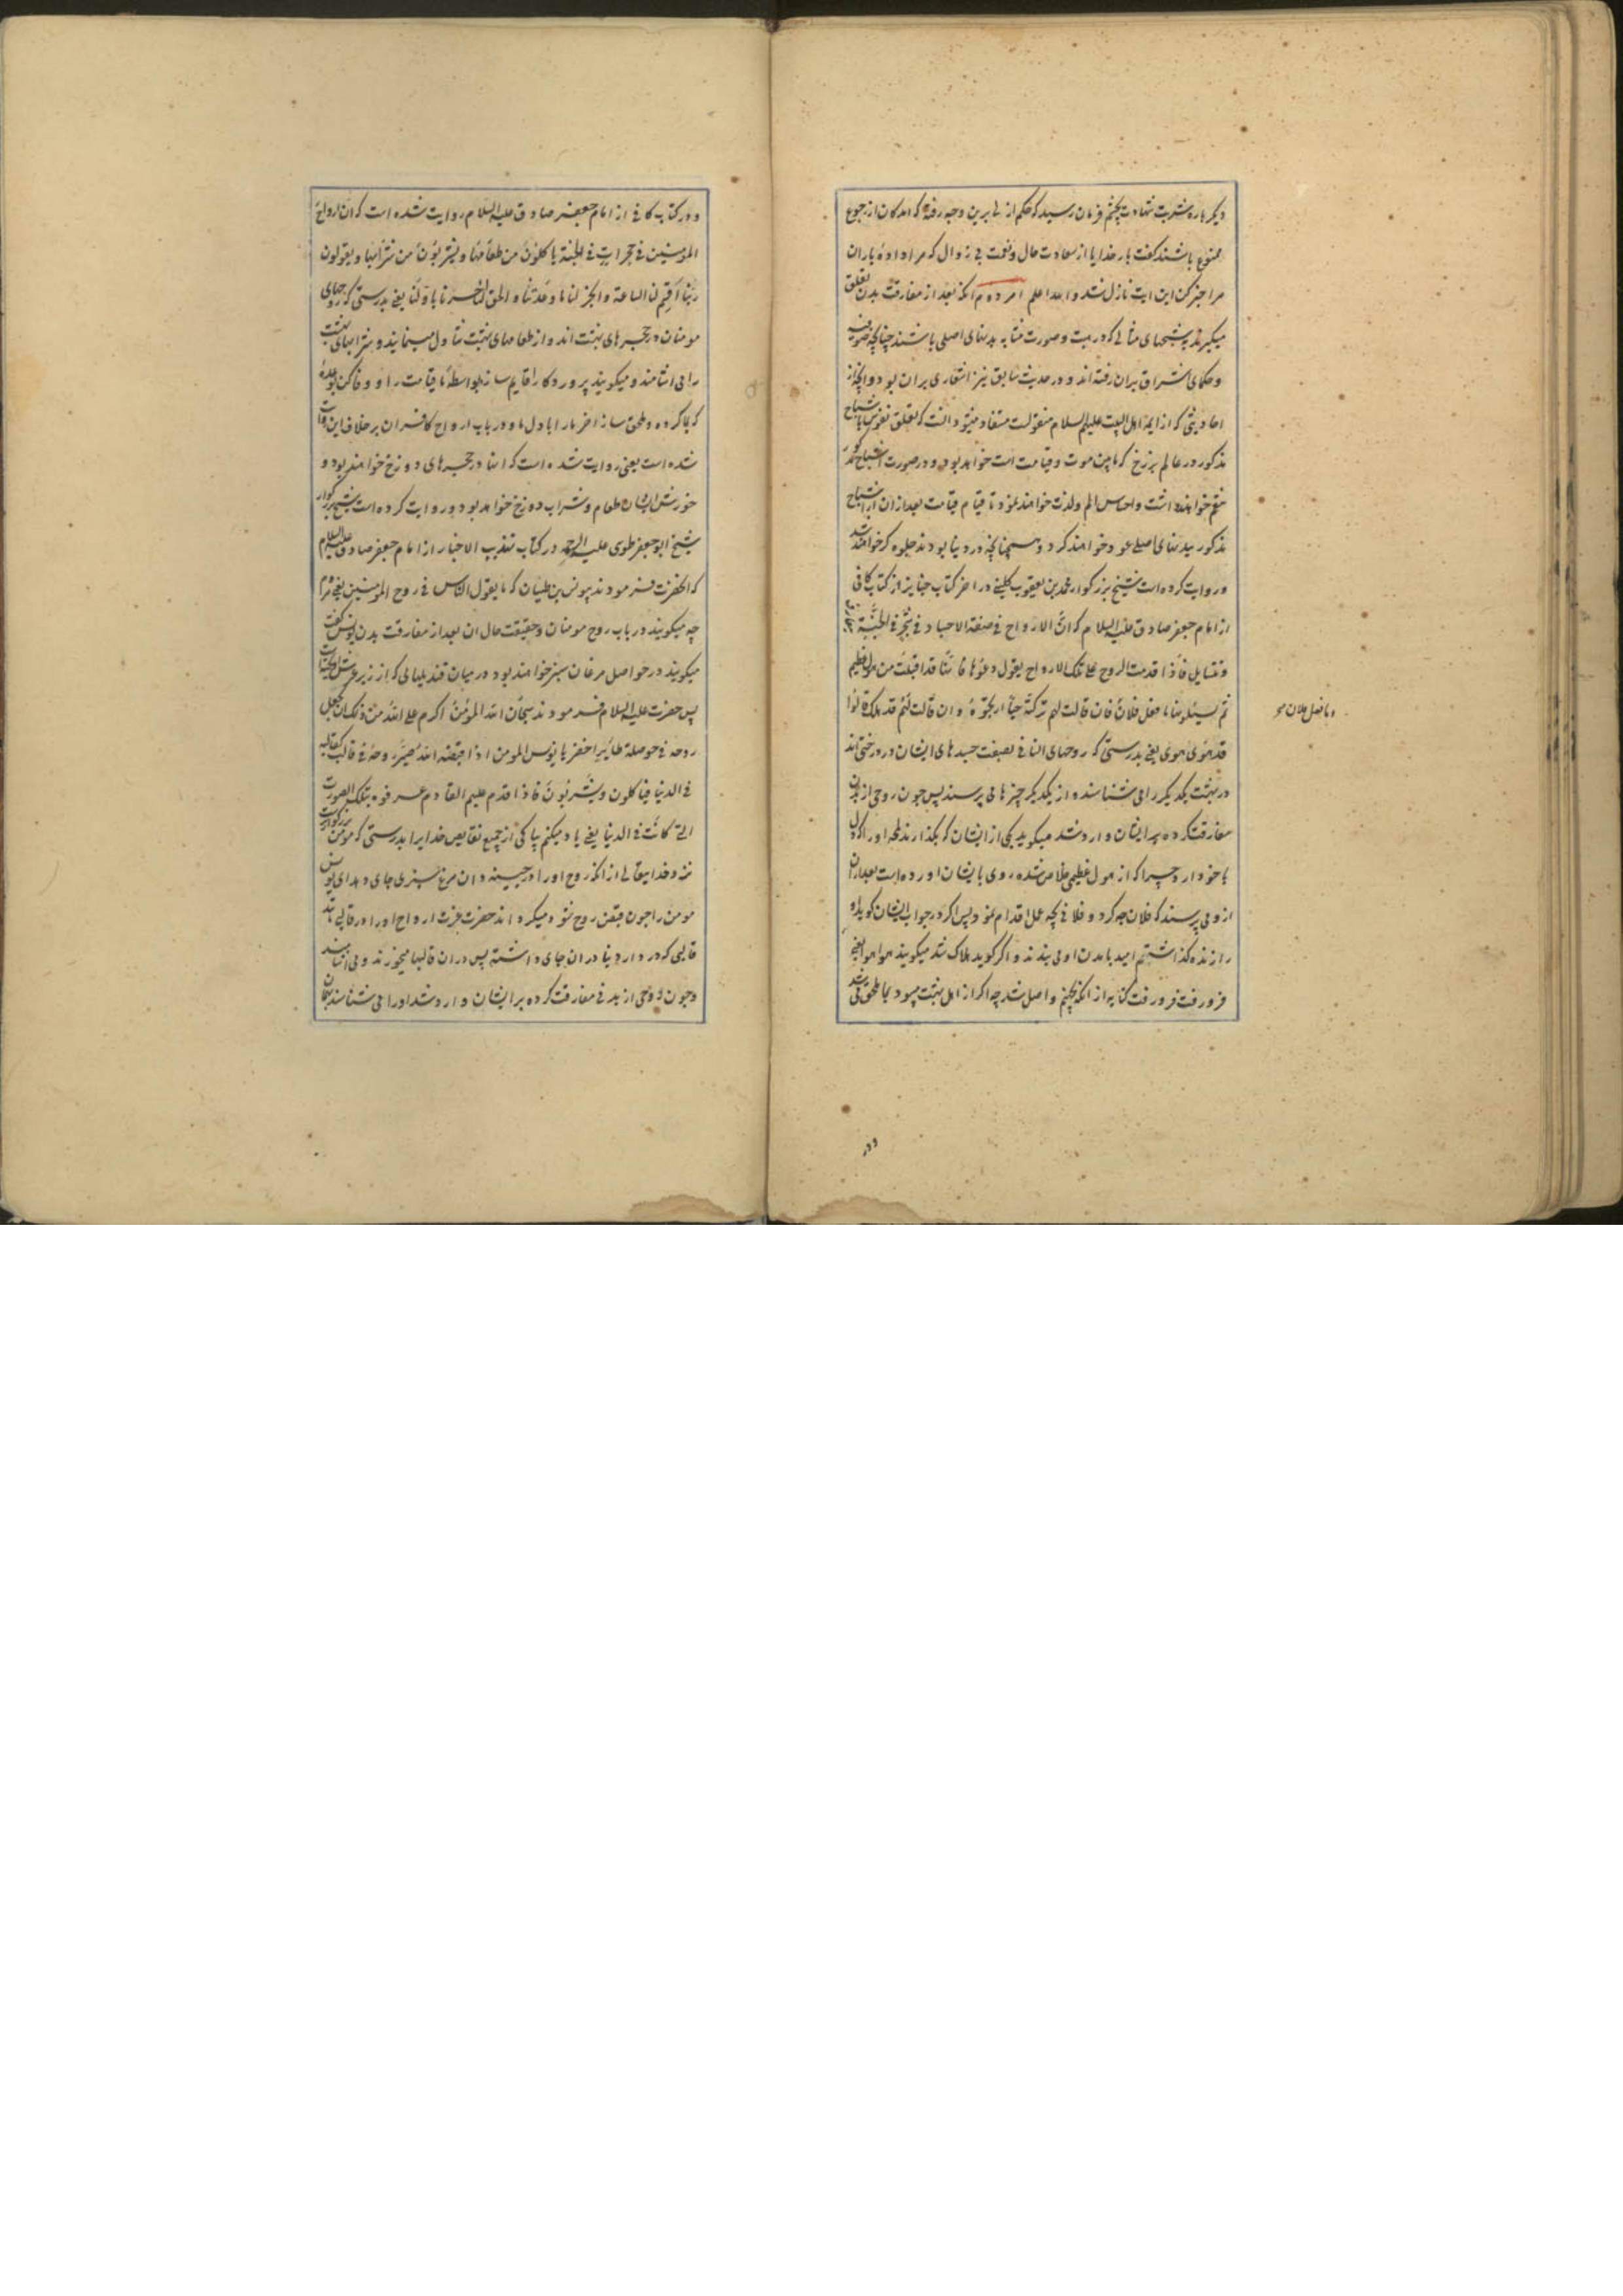 دیگر باره شربت شهادت بچشم فرمان رسید که حکم ازلی برین وجه رفته که آمدکان از رجوع
ممنوع باشند گفت بار خدایا از سعادت حال و نعمت بی زوال که مرا داده یاران
مرا خبر کن این ایت نازل شد و الله اعلم امر دوم آنکه بعد از مفارقت بدن تعلق
میگیرند بشبحهای مثالی که در هیت و صورت مشابه بدنهای اصلی باشند چنانچه صوفیه
و حکمای اشراق بران رفته‌اند و در حدیث سابق نیز اشعاری بران بود و آنچه از
احادیثی که از ایمه اهل البیت علیهم السلام منقولست مستفاد میشود آنست که تعلق نفوس باشباح
مذکور در عالم برزخ که ما بین موت و قیامت است خواهد بود و در صورت اشباح مذکور
متنعم خواهند داشت و احساس الم و لذت خواهند نمود تا قیام قیامت بعد از ان از اشباح
مذکور ببدنهای اصلی عود خواهند کرد و همچنانچه در دنیا بودند جلوه گر خواهند شد
و روایت کرده است شیخ بزرگوار محمد بن یعقوب کلینی در اخر کتاب جنایز از کتاب کافی
از امام جعفر صادق علیه السلام که انّ الارواح فی صفة الاجساد فی شجر فی الجنّة
و تسایل فاذا قدمت الروح علی تلک الارواح یقول دعوها فانّها قد اقبلت من هول عظیم
ثم یسئلونها ما فعل فلان فان قالت لهم ترکته حیّاً ارتجوه و ان قالت لهم قد هلک قالوا
قد هوی هوی یعنی بدرستی که روحهای انسانی بصفت جسدهای ایشان در درختی‌اند
در بهشت یکدیگر را می شناسند و از یکدیگر چیزها می پرسند پس چون روحی از بدن
مفارقت کرده بر ایشان وارد شد میگوید یکی از ایشان که بگذارند لمحه اورا که دل
با خود آرد چرا که از هول عظیمی خلاص شده روی بایشان اورده است بعد ازان
از وی پرسند که فلان چه کرد و فلانی بچه عمل اقدام نمود پس اگر در جواب ایشان گوید او
را زنده گذاشتم امید بامدن او می بندند و اگر گوید هلاک شد میگویند هوا هوا یعنی
فرو رفت فرو رفت کنایه از آنکه بجهنم واصل شد چه اگر از اهل بهشت میبود بما ملحق می شد
و ما فعل فلان
ودر
و در کتاب کافی از امام جعفر صادق علیه السلام روایت شده است که ان ارواح
المؤمنین فی حجرات فی الجنة یاکلون من طعامها و یشربون من شرابها و یقولون
ربّنا اقم لنا الساعة و انجز لنا ما وعدتنا و الحق آخرنا باوّلنا یعنی بدرستی که روحهای
مومنان در حجرهای بهشت‌اند و از طعامهای بهشت تناول مینمایند و شرابهای بهشت
را می اشامند و میگویند پروردکارا قایم ساز بواسطه ما قیامت را و وفا کن بوعدهٔ
که بما کرده و ملحق ساز اخر ما را باول ما و در باب ارواح کافران بر خلاف این روایت
شده است یعنی روایت شده است که انها در حجرهای دوزخ خواهند بود و
خورش ایشان طعام و شراب دوزخ خواهد بود و روایت کرده است شیخ بزرگوار
شیخ ابو جعفر طوسی علیه الرحمه در کتاب تهذیب الاخبار از امام جعفر صادق علیه السلام
که انحضرت فرمودند بیونس بن ظبیان که ما یقول الناس فی روح المؤمنین یعنی مردم
چه میگویند در باب روح مومنان و حقیقت حال ان بعد از مفارقت بدن یونس گفت
میگویند در حواصل مرغان سبز خواهند بود در میان قندیلهایی که از زیر عرش آویخته است
پس حضرت علیه السلام فرمودند سبحان الله المؤمن اکرم علی الله من ذلک ان یجعل
روحه فی حوصلة طایر اخضر یا یونس المومن اذا قبضه الله صیّر روحه فی قالب کقالبه
فی الدنیا فیاکلون و یشربون فاذا قدم علیهم القادم عرفوه بتلک الصورت
التی کانت فی الدنیا یعنی یاد میکنم پاکی از جمیع نقایص خدایرا بدرستی که مومن بزرگوارتر
نزد خدایتعالی از آنکه روح اورا در چینه دان مرغ سبزی جای دهد ای یونس
مومن را چون قبض روح شود میگرداند حضرت عزت ارواح اورا در قالبی مانند
قالبی که در دار دنیا دران جای داشته پس دران قالبها میخورند و می اشامند
و چون روحی از بدنی مفارقت کرده بر ایشان وارد شد اورا می شناسند بهمان